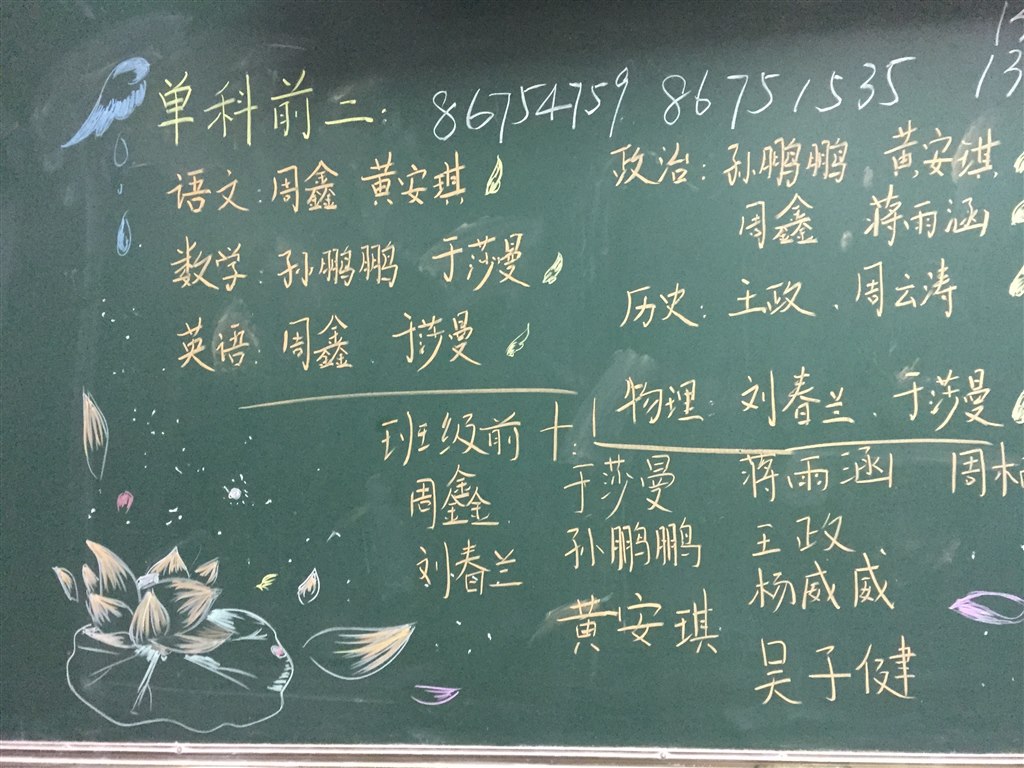 单科前二: 86754759 86751535 13
语文: 周鑫 黄安琪
数学: 孙鹏鹏 于莎曼
英语: 周鑫 于莎曼
政治: 孙鹏鹏 黄安琪
周鑫 蒋雨涵
历史: 王政 周云涛
物理: 刘春兰 于莎曼
班级前十
周鑫 于莎曼 蒋雨涵 周
刘春兰 孙鹏鹏 王政
杨威威
黄安琪
吴子健